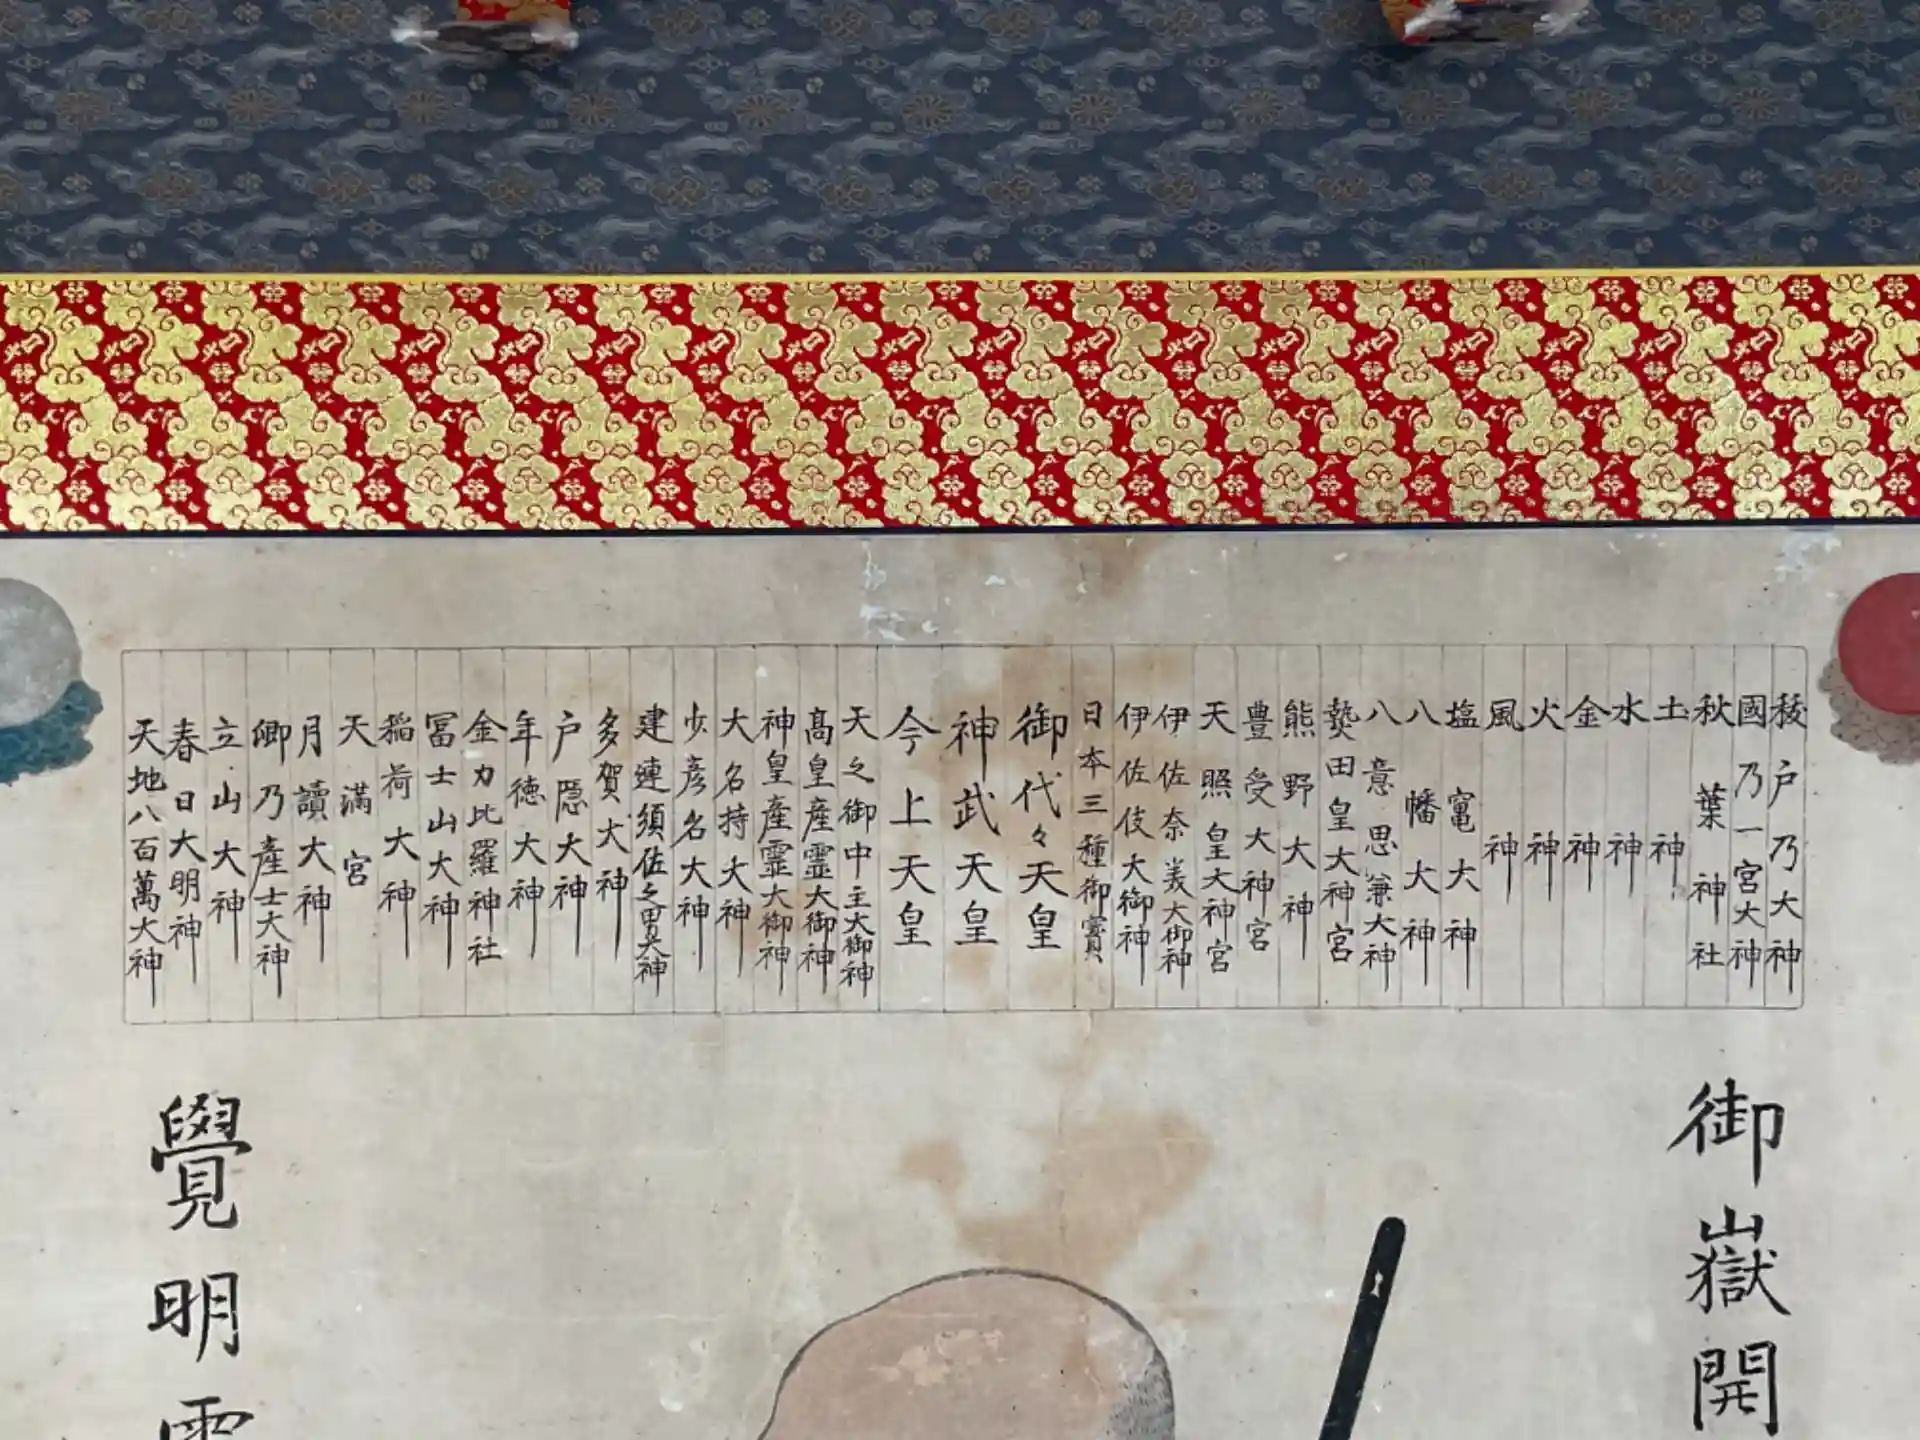 祓戸乃大神
國乃一宮大神
秋葉神社
土神
水神
金神
火神
風神
塩竃大神
八幡大神
八意思兼大神
熱田皇大神宮
熊野大神
豊受大神宮
天照皇大神宮
伊佐奈美大御神
伊佐伎大御神
日本三種御寳
御代々天皇
神武天皇
今上天皇
天之御中主大御神
髙皇産霊大御神
神皇産霊大御神
大名持大神
少彦名大神
建速須佐之男大神
多賀大神
戸隠大神
年徳大神
金力比羅神社
冨士山大神
稲荷大神
天満宮
月讀大神
郷乃産土大神
立山大神
春日大明神
天地八百萬大神
御嶽開
覺明霊